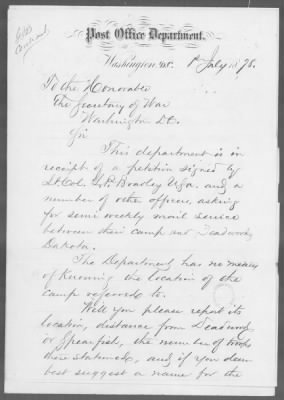 Post Office Department,
Washington, D.C. 1st July 1878.
To the Honorable
The Secretary of War
Washington D.C.
Sir
This department is in
receipt of a petition signed by
Lt. Col. L.P. Bradley U.S.A. and a
number of other officers, asking
for semi weekly mail service
between their camp and Deadwood
Dakota.
The Department has no means
of knowing the location of the
camp referred to.
Will you please report its
location, distance from Deadwood
or Spearfish, the number of troops
there stationed, and if you deem
best suggest a name for the